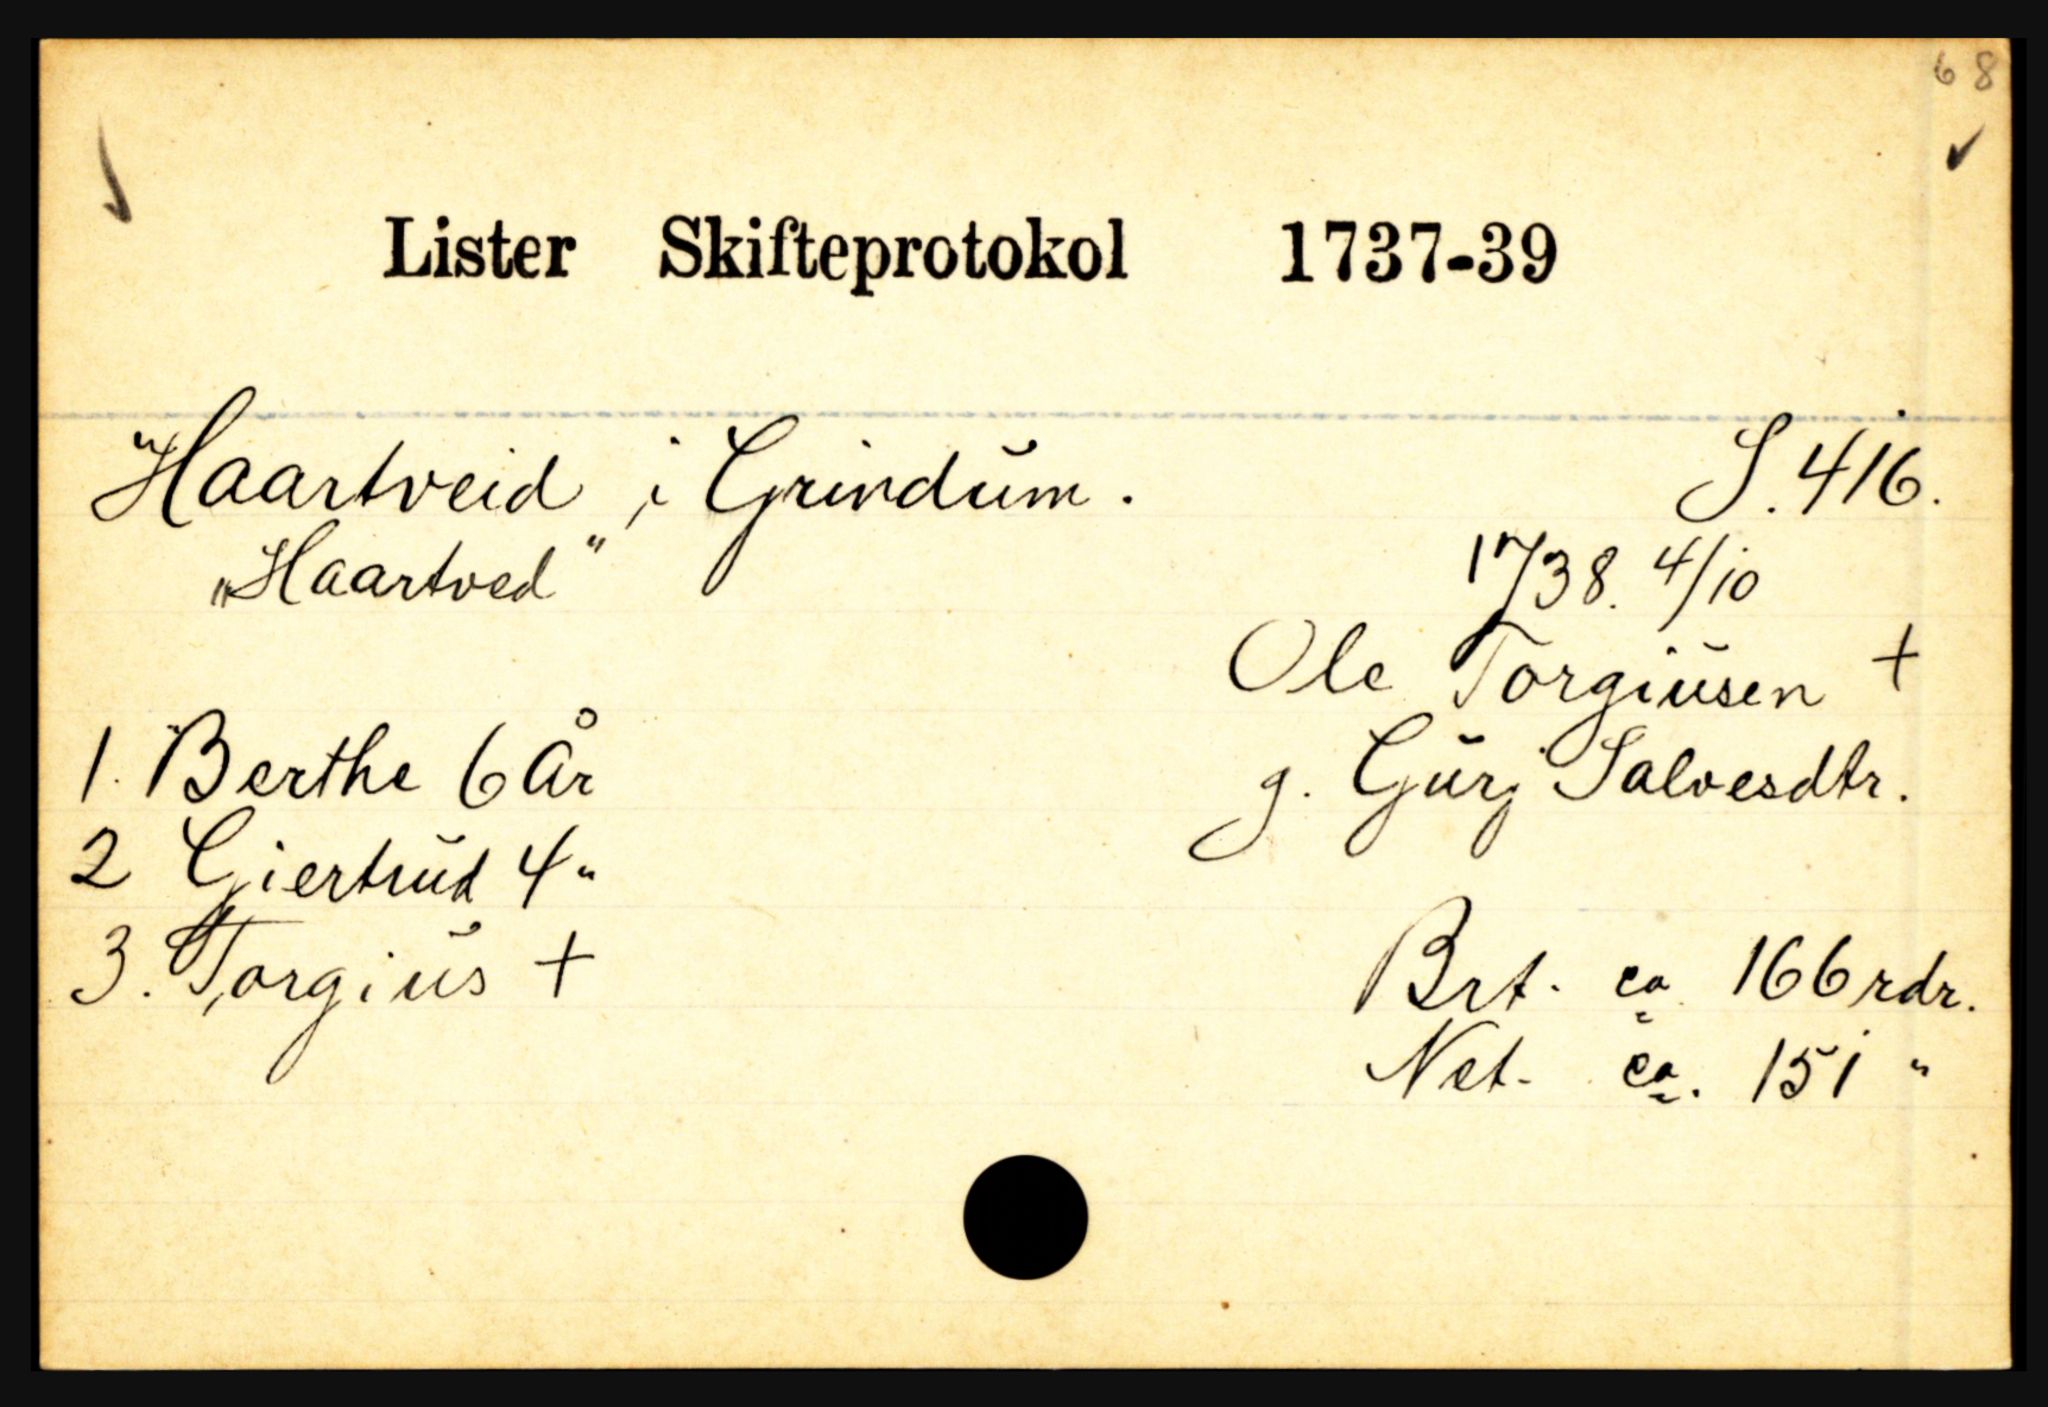 68
Lister Skifteprotokol 1737-39
Haartveid i Grindum. S. 416.
„Haartved" 1738. 4/10
Ole Torgiusen +
1. Berthe 6 År g. Guri Salvesdtr.
2 Giertrud 4 "
3. Torgius + Brt. ca. 166 rdr.
Net. ca. 151 "